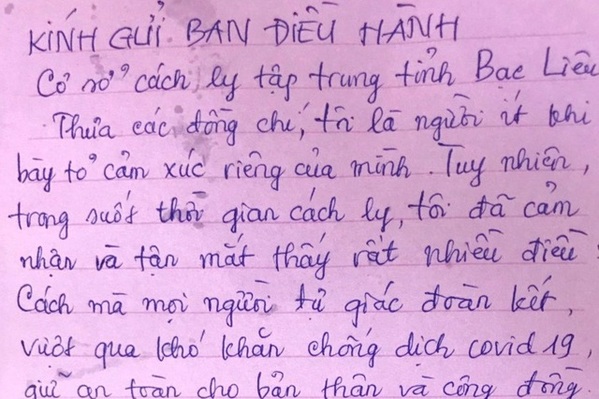 KÍNH GỬI BAN ĐIỀU HÀNH
Cơ sở cách ly tập trung tỉnh Bạc Liêu
Thưa các đồng chí, tôi là người ít khi
bày tỏ cảm xúc riêng của mình. Tuy nhiên,
trong suốt thời gian cách ly, tôi đã cảm
nhận và tận mắt thấy rất nhiều điều:
Cách mà mọi người tự giác đoàn kết,
vượt qua khó khăn chống dịch covid 19,
giữ an toàn cho bản thân và cộng đồng.